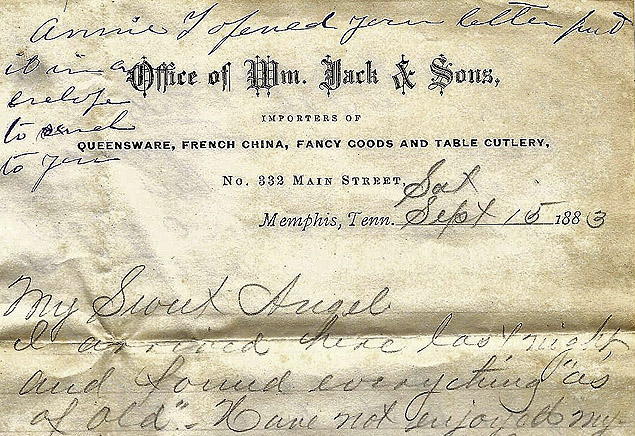 Annie I opened your letter put
it in a
envelope
to send
to you
Office of Wm. Jack & Sons,
IMPORTERS OF
QUEENSWARE, FRENCH CHINA, FANCY GOODS AND TABLE CUTLERY,
No. 332 Main Street,
Sat
Memphis, Tenn. Sept 15 1883
My Sweet Angel
I arrived here last night
and found everything "as
of old" - Have not enjoyed my